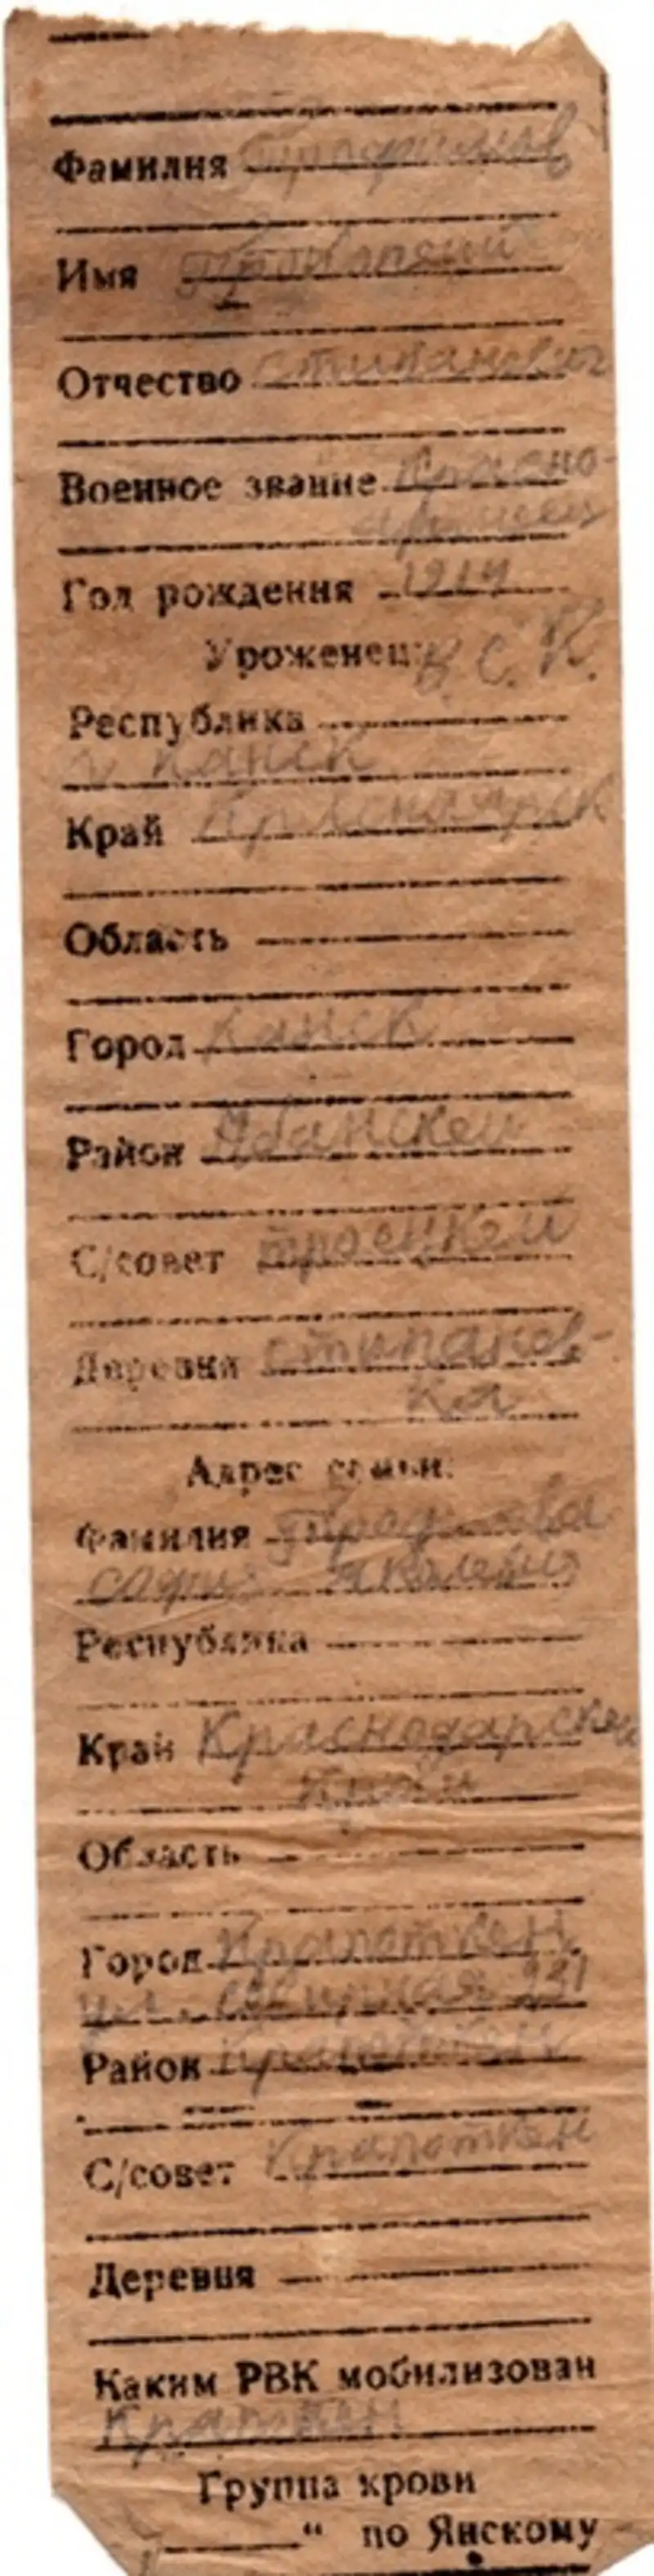 Фамилия
Имя
Отчество Стипанович
Военное звание Красно-
армеец
Год рождения 1914
Уроженец: В. С. К.
Республика
г Канск
Край Красноярск
Область
Город Канск
Район Абанскей
С/совет троецкей
Деревня стипанов-
ка
Адрес семьи:
Фамилия
Республика
Край Краснодарскей
Край
Область
Город Крапоткен
ул. 231
Район Крапоткен
С/совет Крапоткен
Деревня
Каким РВК мобилизован
Группа крови
" по Янскому